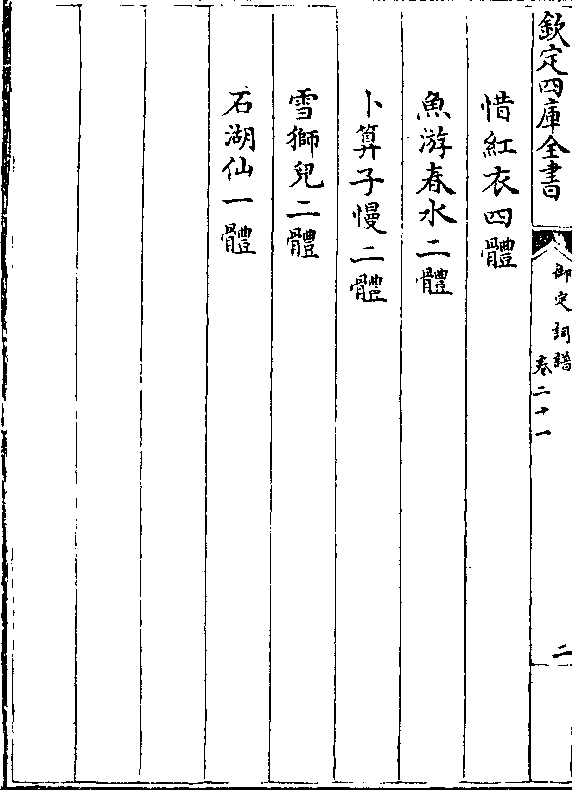 欽定四庫全書
御定詞譜
卷二十一
二
惜紅衣四體
魚游春水二體
卜算子慢二體
雪獅兒二體
石湖仙一體